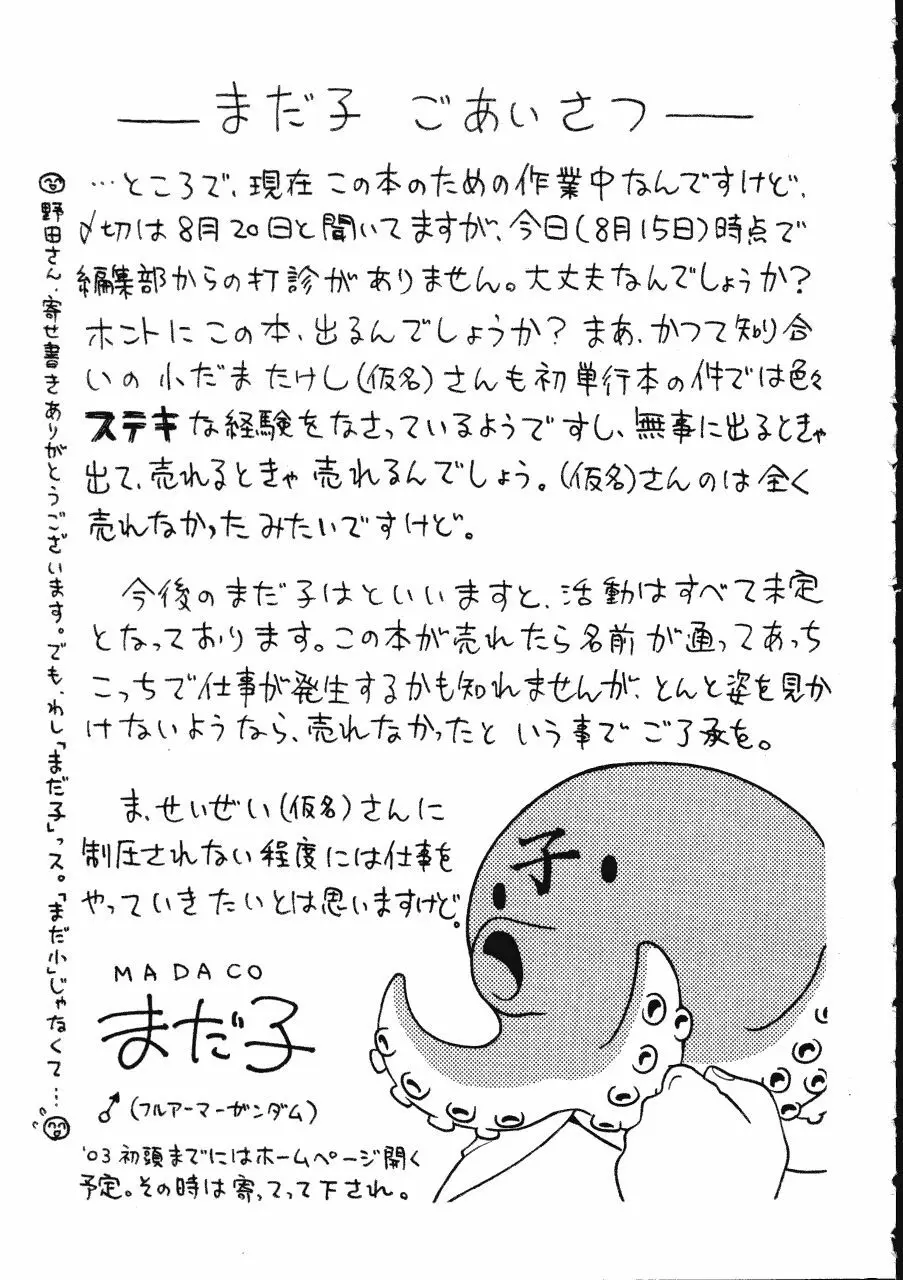 まだ子 ごあいさつ
…ところで、現在 この本のための作業中なんですけど、
〆切は8月20日と聞いてますが、今日(8月15日)時点で
編集部からの打診がありません。大丈夫なんでしょうか?
ホントにこの本、出るんでしょうか? まあ、かつて知り合
いの 小だまたけし(仮名)さんも初単行本の件では色々
ステキな経験をなさっているようですし、無事に出るときゃ
出て、売れるときゃ 売れるんでしょう。(仮名)さんのは全く
売れなかったみたいですけど。
今後のまだ子はといいますと、活動はすべて未定
となっております。この本が売れたら名前が通ってあっち
こっちで仕事が発生するかも知れませんが、とんと姿を見か
けないようなら、売れなかったと いう事で ご了承を。
ま、せいぜい(仮名)さんに
制圧されない程度には仕事を
やっていきたいとは思いますけど。
子
MADACO
まだ子
♂(フルアーマーガンダム)
'03初頭までにはホームページ開く
予定。その時は寄ってって下され。
野田さん、寄せ書きありがとうございます。でも、わし「まだ子」っス。「まだ小」じゃなくて…